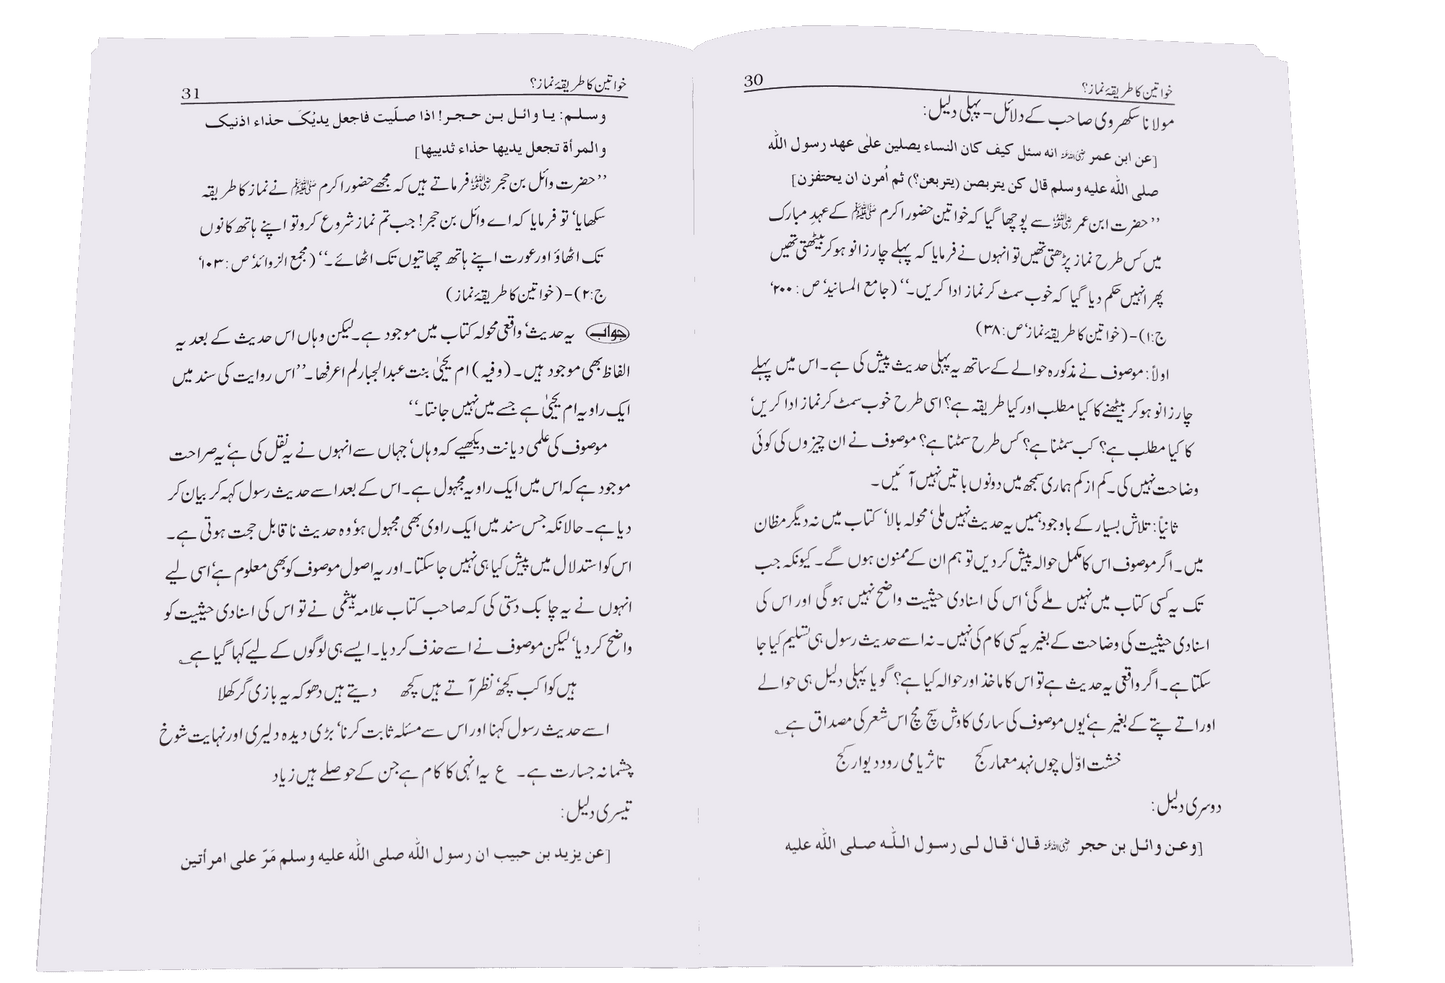 خواتین کا طریقۂ نماز؟ 30
مولانا سکھروی صاحب کے دلائل – پہلی دلیل:
[عن ابن عمر ﷛ انه سئل كيف كان النساء يصلين على عهد رسول الله
صلى الله عليه وسلم قال كن يتربصن (يتربعن؟) ثم أُمرن ان يحتفزن]
’’حضرت ابن عمر ﷛ سے پوچھا گیا کہ خواتین حضور اکرم ﷺ کے عہدِ مبارک
میں کس طرح نماز پڑھتی تھیں تو انہوں نے فرمایا کہ پہلے چار زانو ہو کر بیٹھتی تھیں
پھر انہیں حکم دیا گیا کہ خوب سمٹ کر نماز ادا کریں۔‘‘ (جامع المسانید‘ ص: ۲۰۰‘
ج:۱) – (خواتین کا طریقۂ نماز‘ ص:۳۸)
اولاً: موصوف نے مذکورہ حوالے کے ساتھ یہ پہلی حدیث پیش کی ہے۔ اس میں پہلے
چار زانو ہو کر بیٹھنے کا کیا مطلب اور کیا طریقہ ہے؟ اسی طرح خوب سمٹ کر نماز ادا کریں‘
کا کیا مطلب ہے؟ کب سمٹنا ہے؟ کس طرح سمٹنا ہے؟ موصوف نے ان چیزوں کی کوئی
وضاحت نہیں کی۔ کم از کم ہماری سمجھ میں دونوں باتیں نہیں آئیں۔
ثانیاً: تلاش بسیار کے باوجود ہمیں یہ حدیث نہیں ملی‘ محولہ بالا‘ کتاب میں نہ دیگر مظان
میں۔ اگر موصوف اس کا مکمل حوالہ پیش کر دیں تو ہم ان کے ممنون ہوں گے۔ کیونکہ جب
تک یہ کسی کتاب میں نہیں ملے گی‘ اس کی اسنادی حیثیت واضح نہیں ہوگی اور اس کی
اسنادی حیثیت کی وضاحت کے بغیر یہ کسی کام کی نہیں۔ نہ اسے حدیث رسول ہی تسلیم کیا جا
سکتا ہے۔ اگر واقعی یہ حدیث ہے تو اس کا ماخذ اور حوالہ کیا ہے؟ گویا پہلی دلیل ہی حوالے
اور اتے پتے کے بغیر ہے‘ یوں موصوف کی ساری کاوش سچ مچ اس شعر کی مصداق ہے؂
خشت اوّل چوں نہد معمار کج تا ثریا می رود دیوار کج
دوسری دلیل:
[وعن وائل بن حجر ﷛ قال‘ قال لی رسول اللّٰه صلی اللّٰه علیه
خواتین کا طریقۂ نماز؟ 31
وسلم: یا وائل بن حجر! اذا صلّیت فاجعل یدیْکَ حذاء اذنیک
والمرأة تجعل یدیها حذاء ثدییها]
’’حضرت وائل بن حجر ﷛ فرماتے ہیں کہ مجھے حضور اکرم ﷺ نے نماز کا طریقہ
سکھایا‘ تو فرمایا کہ اے وائل بن حجر! جب تم نماز شروع کرو تو اپنے ہاتھ کانوں
تک اٹھاؤ اور عورت اپنے ہاتھ چھاتیوں تک اٹھائے۔‘‘ (مجمع الزوائد‘ ص:۱۰۳‘
ج:۲) – (خواتین کا طریقۂ نماز)
جواب یہ حدیث‘ واقعی محولہ کتاب میں موجود ہے۔ لیکن وہاں اس حدیث کے بعد یہ
الفاظ بھی موجود ہیں۔ (وفیہ) ام یحییٰ بنت عبدالجبار لم اعرفھا۔ ’’اس روایت کی سند میں
ایک راویہ ام یحییٰ ہے جسے میں نہیں جانتا۔‘‘
موصوف کی علمی دیانت دیکھیے کہ وہاں‘ جہاں سے انہوں نے یہ نقل کی ہے‘ یہ صراحت
موجود ہے کہ اس میں ایک راویہ مجہول ہے۔ اس کے بعد اسے حدیث رسول کہہ کر بیان کر
دیا ہے۔ حالانکہ جس سند میں ایک راوی بھی مجہول ہو‘ وہ حدیث ناقابل حجت ہوتی ہے۔
اس کو استدلال میں پیش کیا ہی نہیں جا سکتا۔ اور یہ اصول موصوف کو بھی معلوم ہے‘ اسی لیے
انہوں نے یہ چابک دستی کی کہ صاحب کتاب علامہ ہیثمی نے تو اس کی اسنادی حیثیت کو
واضح کر دیا‘ لیکن موصوف نے اسے حذف کر دیا۔ ایسے ہی لوگوں کے لیے کہا گیا ہے؂
ہیں کواکب کچھ‘ نظر آتے ہیں کچھ دیتے ہیں دھوکہ یہ بازی گر کھلا
اسے حدیث رسول کہنا اور اس سے مسئلہ ثابت کرنا‘ بڑی دیدہ دلیری اور نہایت شوخ
چشمانہ جسارت ہے۔ ع یہ انہی کا کام ہے جن کے حوصلے ہیں زیاد
تیسری دلیل:
[عن یزید بن حبیب ان رسول اللّٰه صلی اللّٰه علیه وسلم مَرّ علی امرأتین